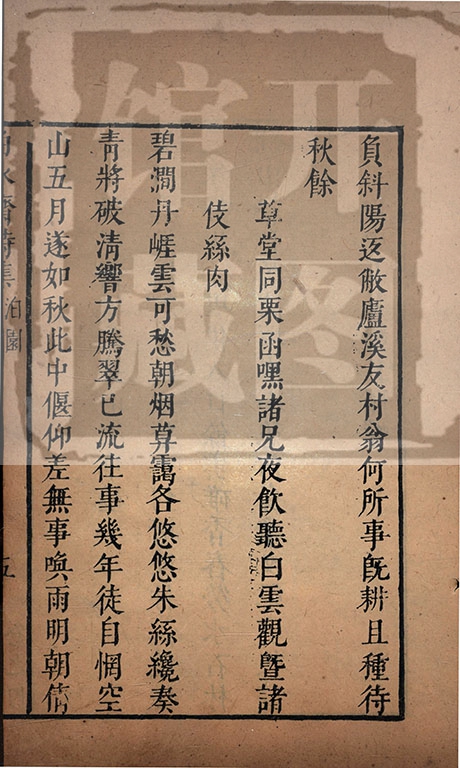 負斜陽返敝廬溪友村翁何所事旣耕且種待
秋餘
草堂同栗函嘿諸兄夜飲聽白雲觀曁諸
伎絲肉
碧澗丹崕雲可愁朝烟莫靄各悠悠朱絲纔奏
靑將破淸響方騰翠已流往事幾年徒自惘空
山五月遂如秋此中偃仰差無事喚雨明朝倩
泊園
五
开图
馆藏